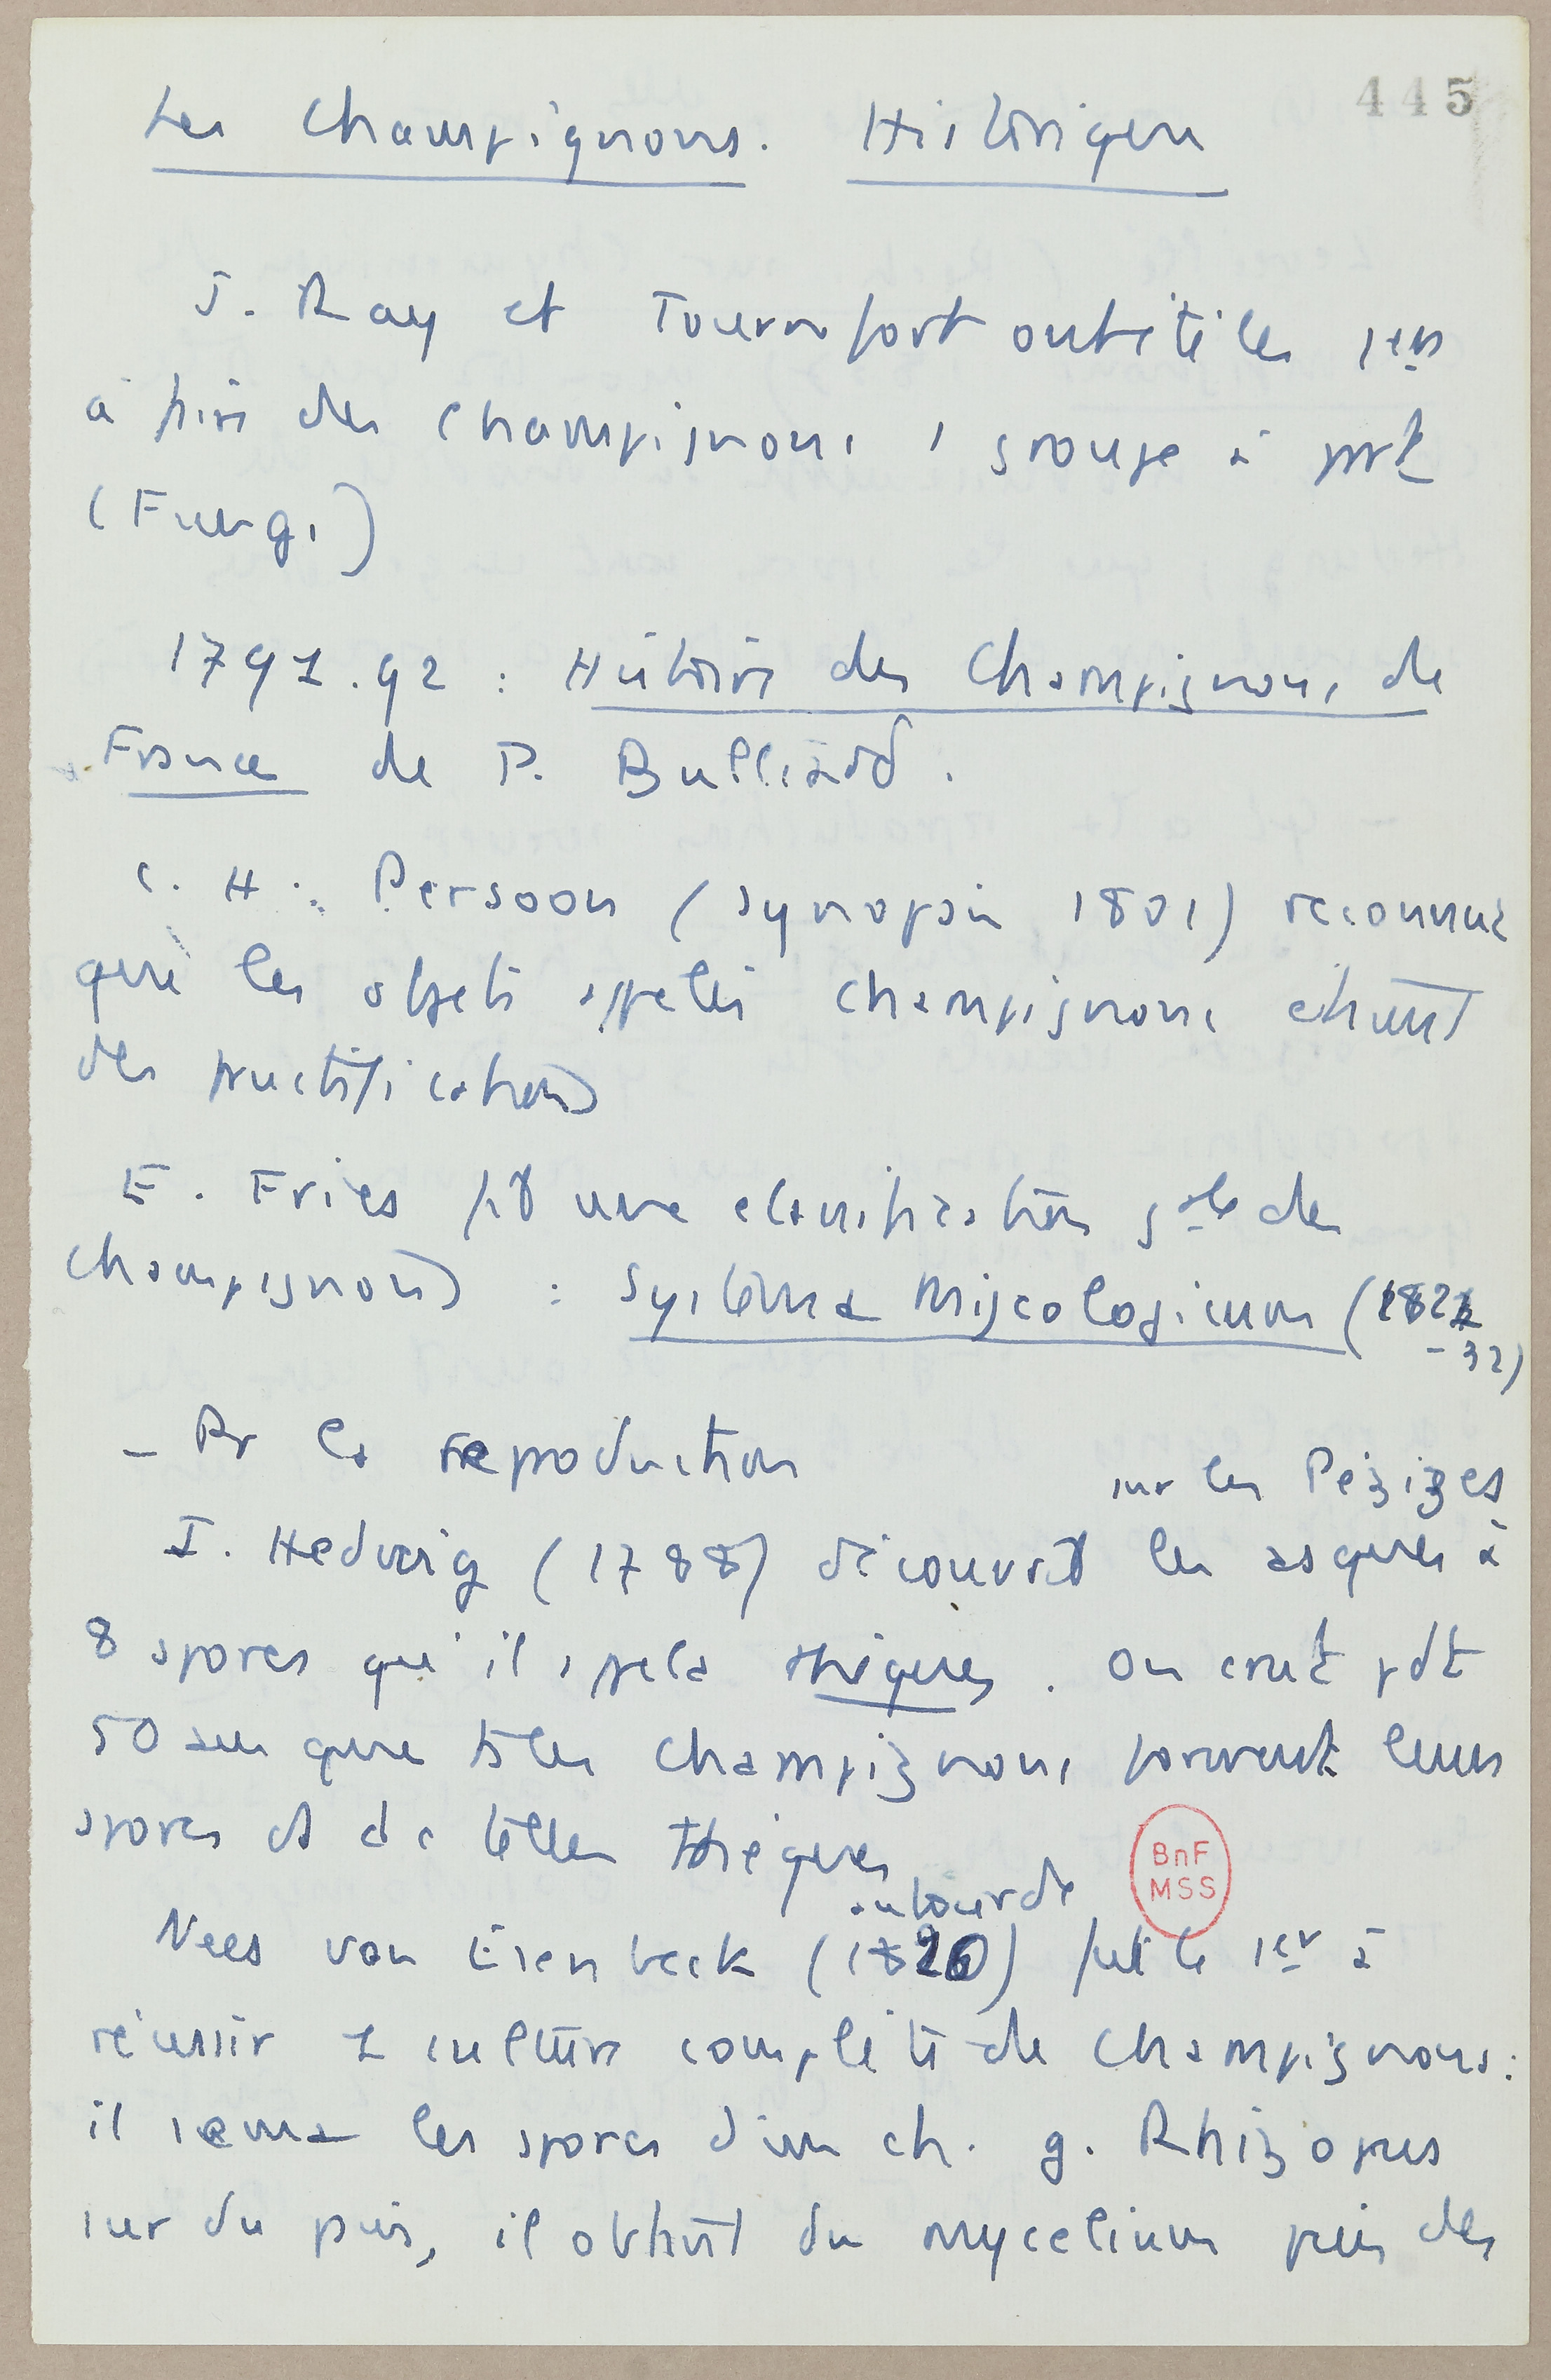 445
Les Champignons. Historique
J. Ray et Tournefort ont été les 1ers
à faire des champignons 1 groupe à part
(Fungi)
1791.92 : Histoire des Champignons de
France de P. Bulliard.
C. H. Persoon (Synopsis 1801) reconnut
que les objets appelés champignons étaient
des fructifications
E. Fries fit une classification gale des
champignons : Systema Mycologicum (1821
-32)
- Pr la reproduction
sur les Pézizes
J. Hedwig (1788) découvrit les asques à
8 spores qu'il appela thèques. On crut pdt
50 ans que ts les champignons formaient leurs
spores ds de telles thèques
autour de
Nees von Esenbeck (1820) fut le 1er à
réussir 1 culture complète de champignons :
il sema les spores d'un ch. g. Rhizopus
sur du pain, il obtint du mycelium puis des
BnF
MSS